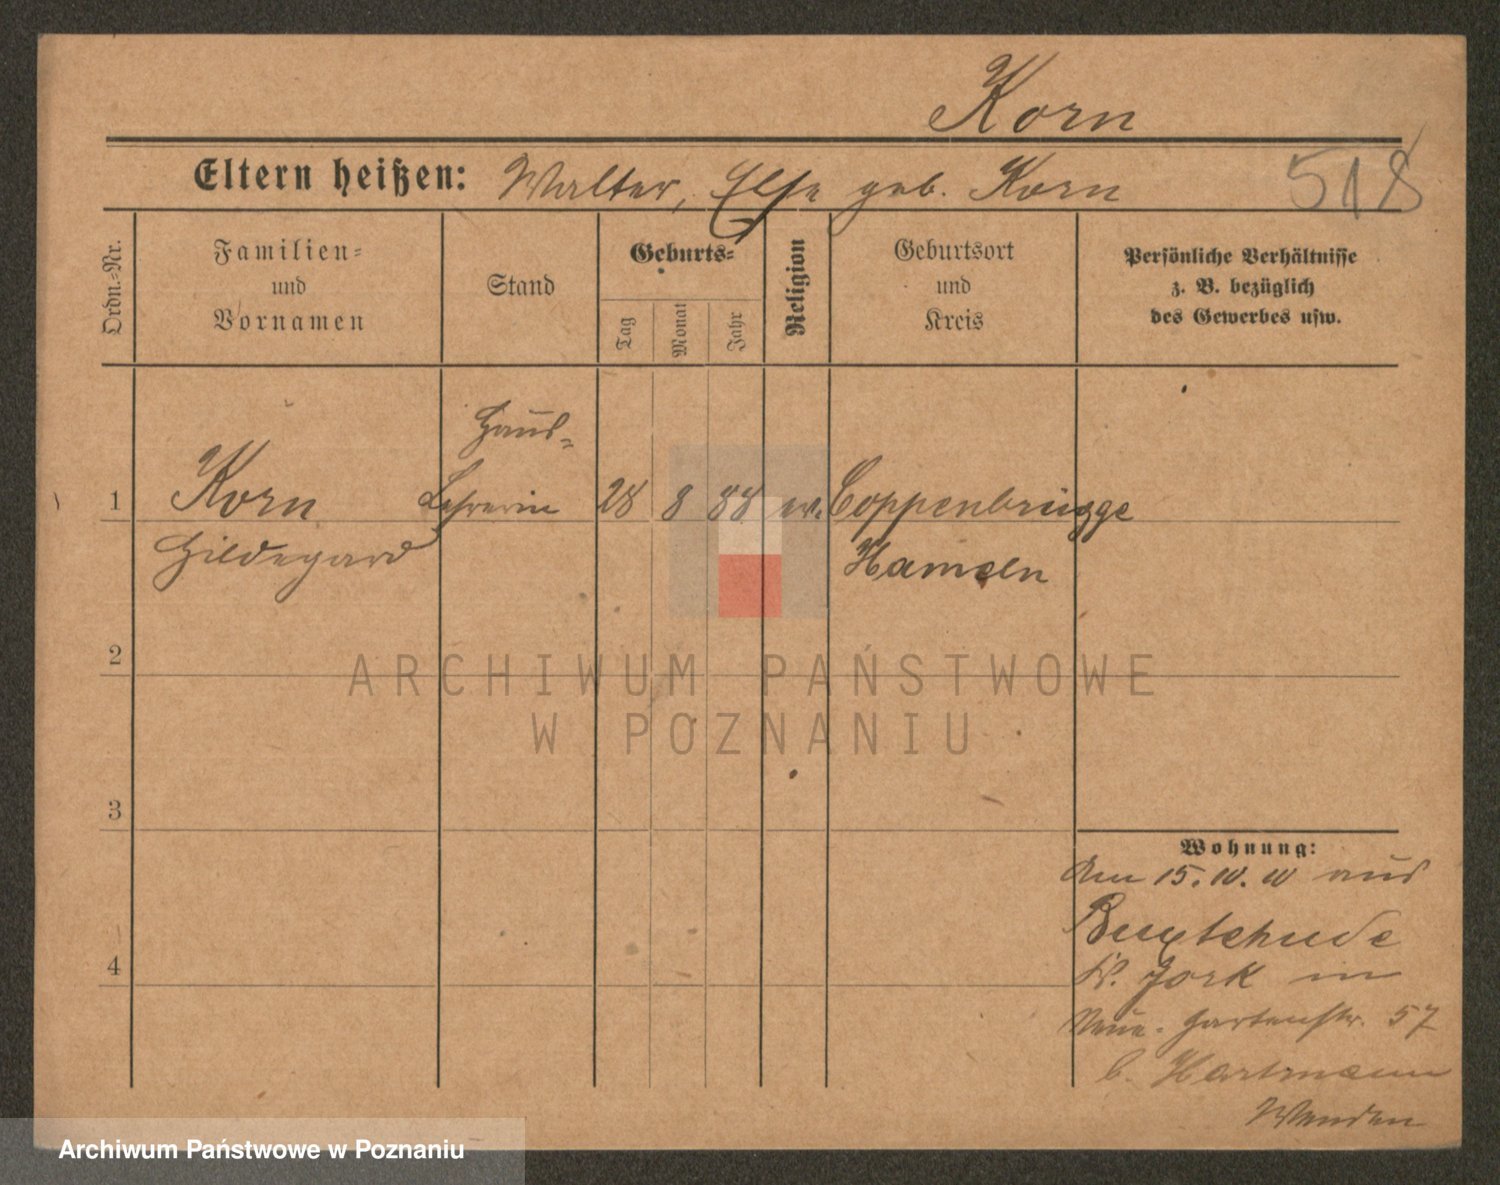 Korn
Eltern heißen: Walter, Else geb. Korn
518
Ordn.-Nr.
Familien-
und
Vornamen
Stand
Geburts-
Tag
Monat
Jahr
Religion
Geburtsort
und
Kreis
Persönliche Verhältnisse
z. B. bezüglich
des Gewerbes usw.
Haus-
1 Korn Lehrerin 28 8 88 ev. Coppenbrügge
Hildegard Hameln
2
3
4
Wohnung:
Am 15.10.10 aus
Buxtehude
Kr. Jork in
Neue- Gartenstr. 57
b. Hartmann
ARCHIWUM PAŃSTWOWE
W POZNANIU
Archiwum Państwowe w Poznaniu